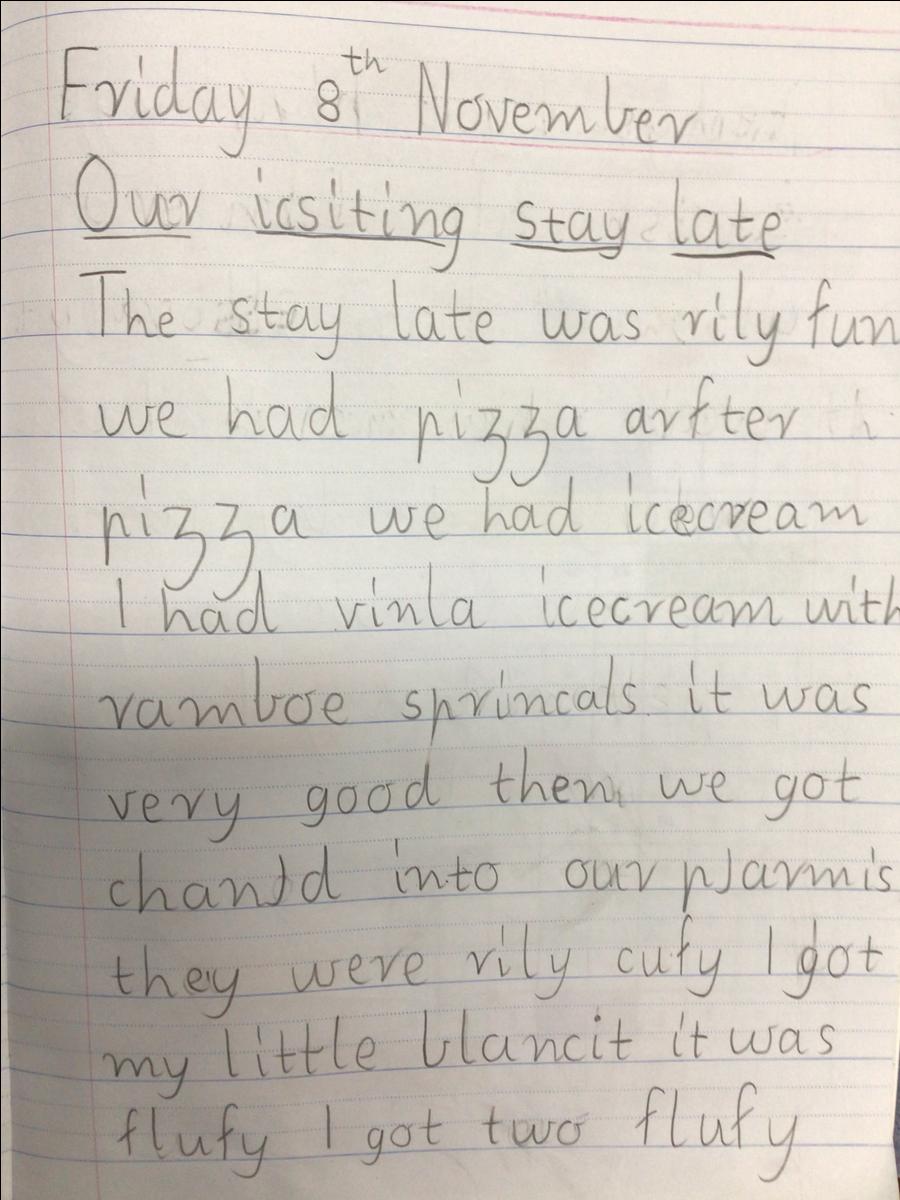 Friday 8th November
Our icsiting stay late
The stay late was rily fun
we had pizza arfter
pizza we had icecream
I had vinla icecream with
ramboe sprincals it was
very good then we got
chanJd into our pJarmis
they were rily cufy I got
my little blancit it was
flufy I got two flufy